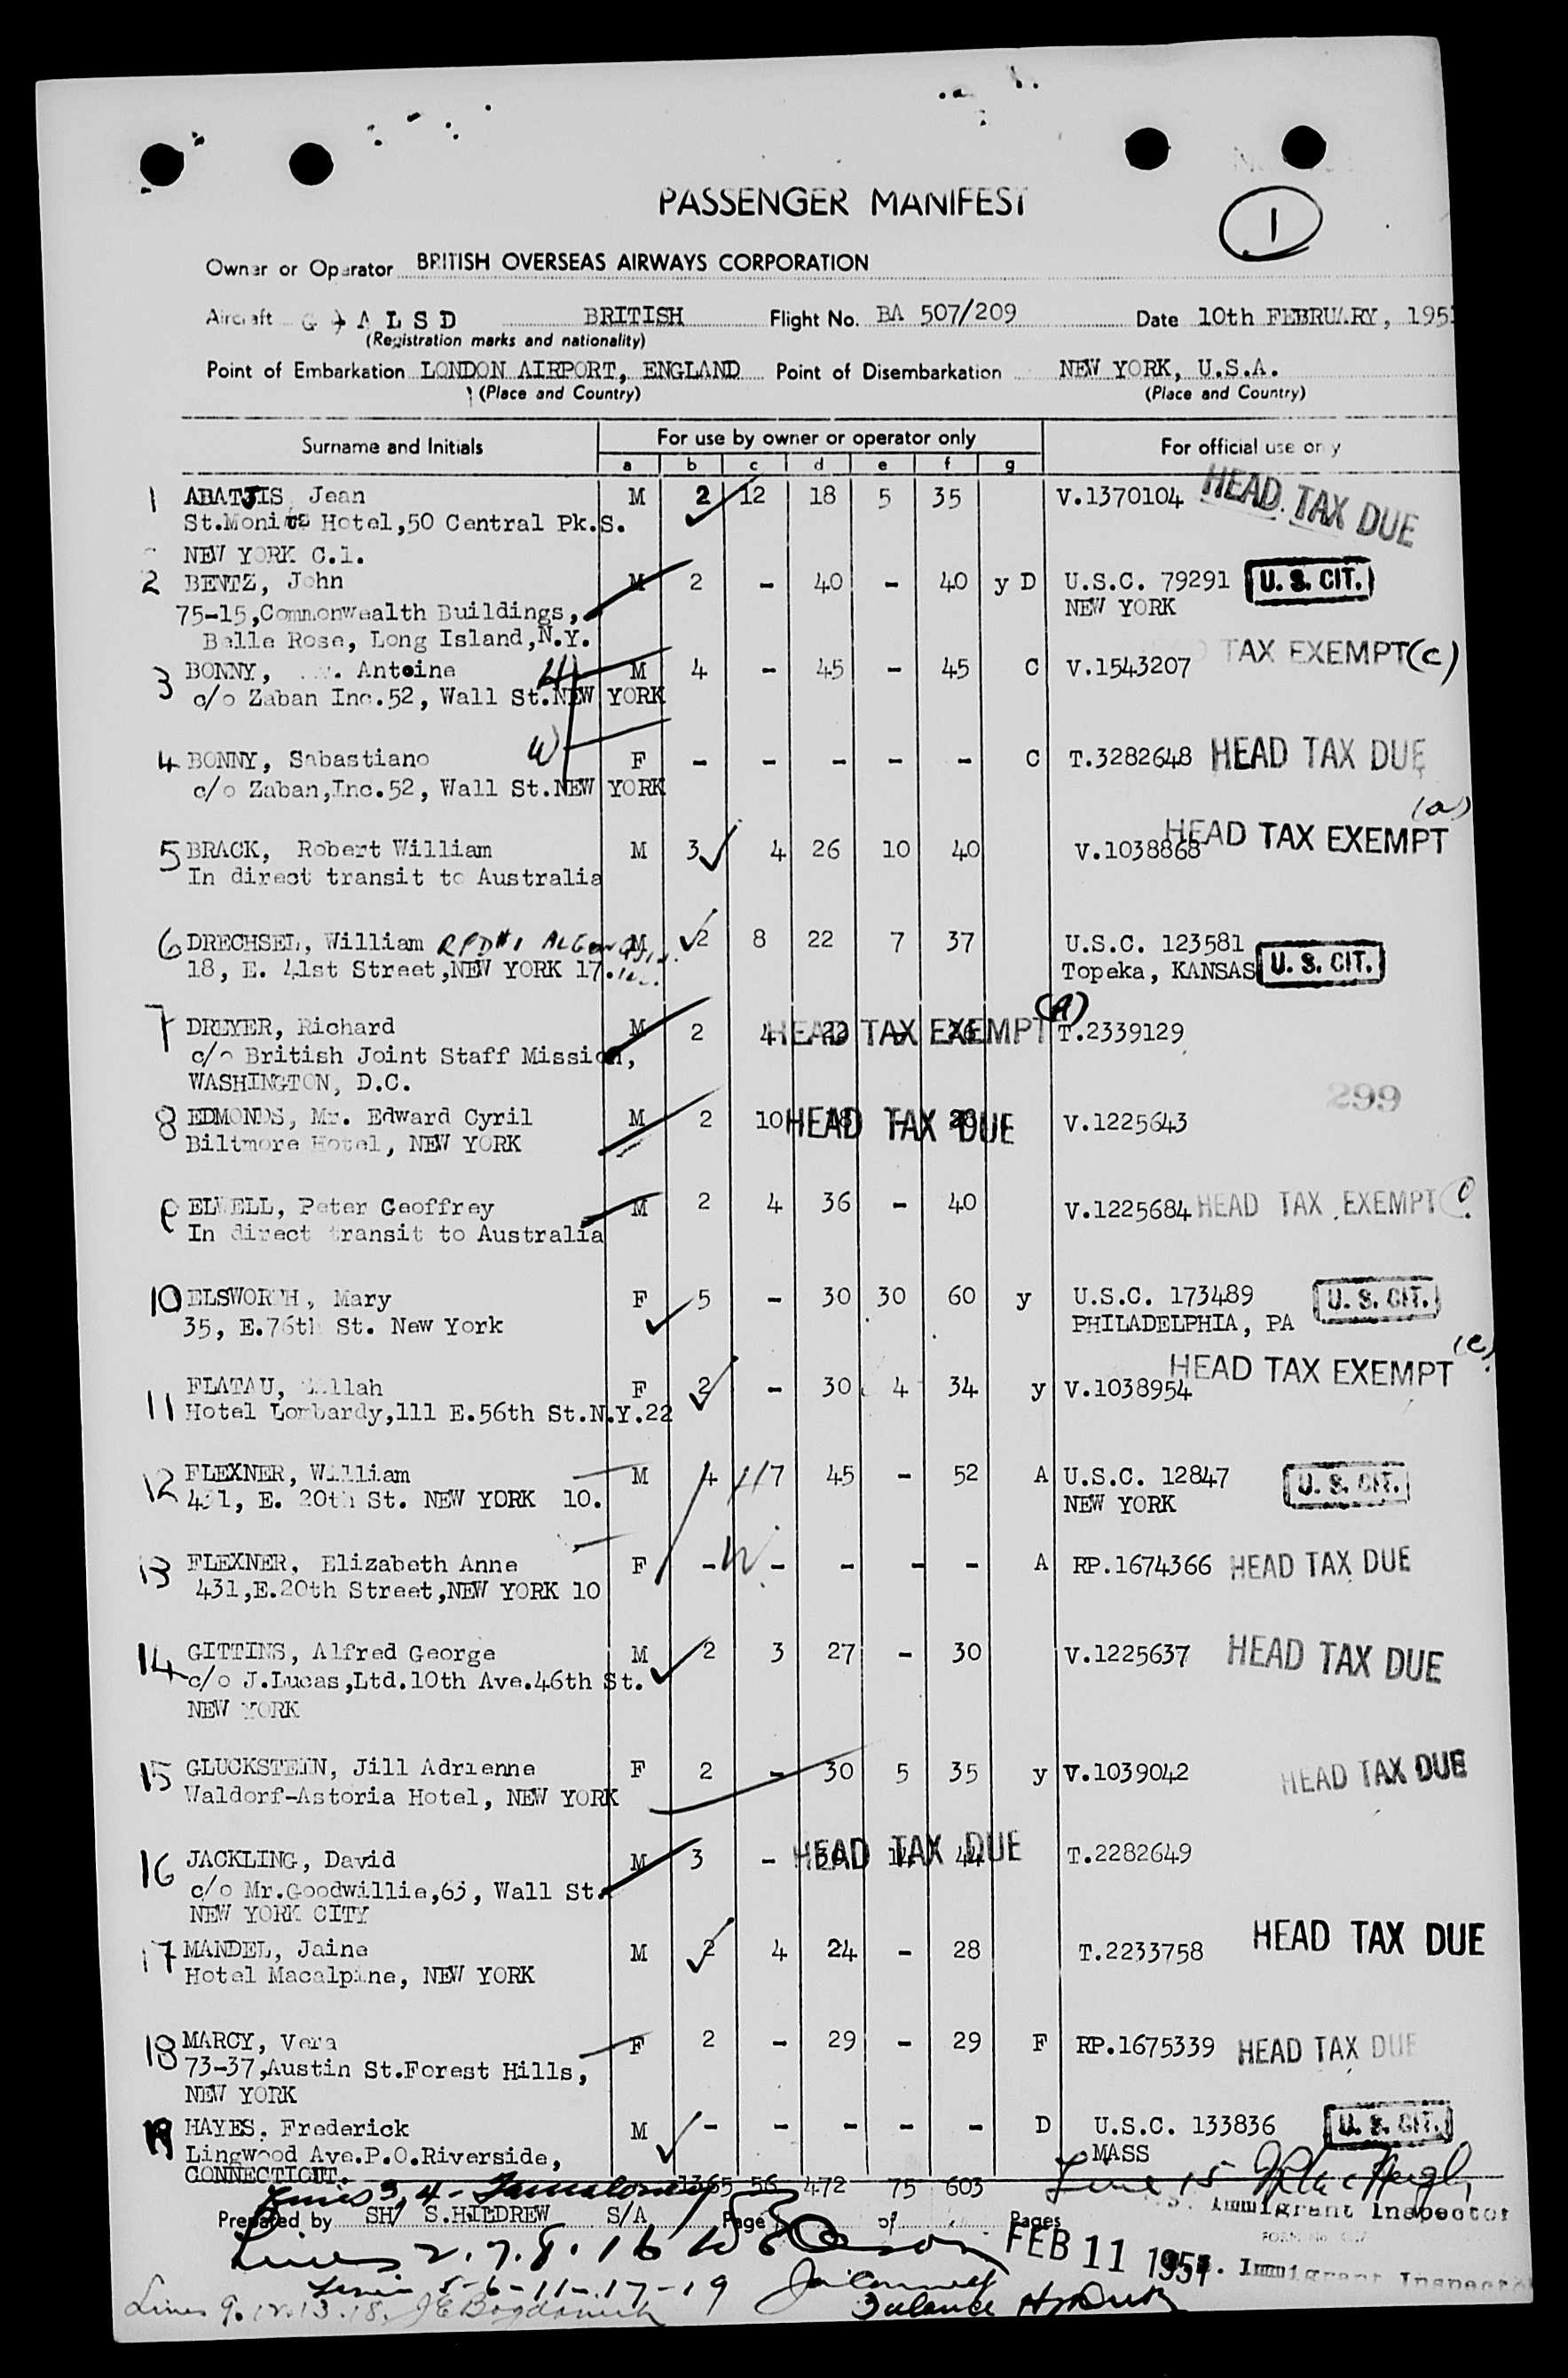 PASSENGER MANIFEST
1
Owner or Operator BRITISH OVERSEAS AIRWAYS CORPORATION
Aircraft G A L S D BRITISH Flight No. BA 507/209 Date 10th FEBRUARY, 195
(Registration marks and nationality)
Point of Embarkation LONDON AIRPORT, ENGLAND Point of Disembarkation NEW YORK, U.S.A.
(Place and Country) (Place and Country)
Surname and Initials For use by owner or operator only For official use only
a b c d e f g
1 ABATJIS Jean M 2 12 18 5 35 V.1370104 HEAD TAX DUE
St.Moritz Hotel,50 Central Pk.S.
NEW YORK C.1.
2 BENTZ, John M 2 - 40 - 40 y D U.S.C. 79291 U. S. CIT.
75-15,Commonwealth Buildings, NEW YORK
Belle Rose, Long Island,N.Y.
3 BONNY, Antoine H M 4 - 45 - 45 C V.1543207 TAX EXEMPT (c)
c/o Zaban Inc.52, Wall St.NEW YORK
4 BONNY, Sabastiano W F - - - - - C T.3282648 HEAD TAX DUE
c/o Zaban,Inc.52, Wall St.NEW YORK
(a)
5 BRACK, Robert William M 3 4 26 10 40 V.1038868 HEAD TAX EXEMPT
In direct transit to Australia
6 DRECHSEL, William RFD#1 M 2 8 22 7 37 U.S.C. 123581
18, E. 41st Street,NEW YORK 17. Topeka, KANSAS U. S. CIT.
7 DREYER, Richard M 2 4 22 - 26 HEAD TAX EXEMPT (A) T.2339129
c/o British Joint Staff Mission,
WASHINGTON, D.C.
299
8 EDMONDS, Mr. Edward Cyril M 2 10 18 - 28 HEAD TAX DUE V.1225643
Biltmore Hotel, NEW YORK
9 ELWELL, Peter Geoffrey M 2 4 36 - 40 V.1225684 HEAD TAX EXEMPT
In direct transit to Australia
10 ELSWORTH, Mary F 5 - 30 30 60 y U.S.C. 173489 U. S. CIT.
35, E.76th St. New York PHILADELPHIA, PA
(c)
11 FLATAU, F 2 - 30 4 34 y V.1038954 HEAD TAX EXEMPT
Hotel Lombardy,111 E.56th St.N.Y.22
12 FLEXNER, William M 4 7 45 - 52 A U.S.C. 12847 U. S. CIT.
431, E. 20th St. NEW YORK 10. NEW YORK
13 FLEXNER, Elizabeth Anne F - W - - - - A RP.1674366 HEAD TAX DUE
431,E.20th Street,NEW YORK 10
14 GITTINS, Alfred George M 2 3 27 - 30 V.1225637 HEAD TAX DUE
c/o J.Lucas,Ltd.10th Ave.46th St.
NEW YORK
15 GLUCKSTEIN, Jill Adrienne F 2 - 30 5 35 y V.1039042 HEAD TAX DUE
Waldorf-Astoria Hotel, NEW YORK
16 JACKLING, David M 3 - 30 14 44 HEAD TAX DUE T.2282649
c/o Mr.Goodwillie,63, Wall St.
NEW YORK CITY
17 MANDEL, Jaine M 2 4 24 - 28 T.2233758 HEAD TAX DUE
Hotel Macalpine, NEW YORK
18 MARCY, Vera F 2 - 29 - 29 F RP.1675339 HEAD TAX DUE
73-37,Austin St.Forest Hills,
NEW YORK
19 HAYES, Frederick M - - - - - D U.S.C. 133836 U. S. CIT.
Lingwood Ave.P.O.Riverside, MASS
CONNECTICUT.
1365 56 472 75 603
Lines 3, 4 - Line 15
Immigrant Inspector
Prepared by SH/ S.HILDREW S/A Page of Pages
FEB 11 1951
Lines 2.7.8.16
Immigrant Inspector
Lines 5-6-11-17-19
Lines 9.12.13.18. balance